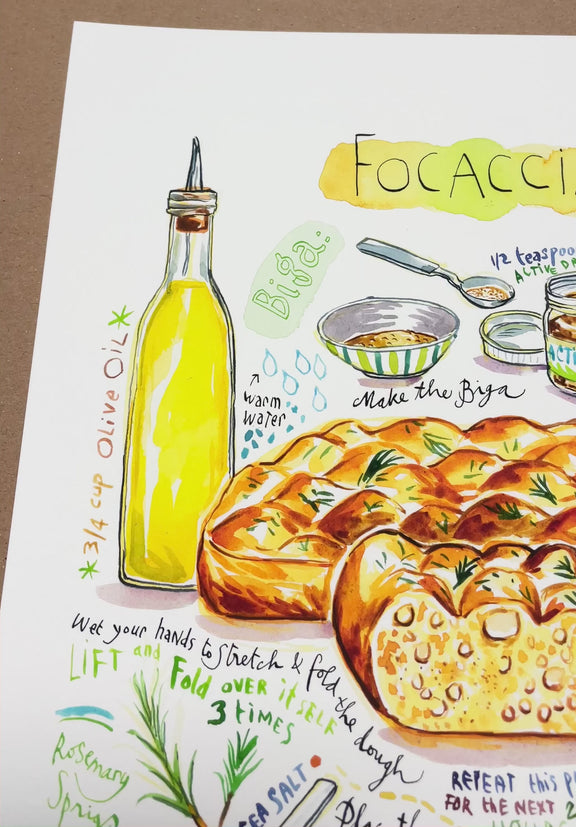 FOCACCI
Biga.
1/2 teaspoo
ACTIVE DR
ACTI
warm
water
Make the Biga
*3/4 cup Olive Oil*
Wet your hands to stretch & fold the dough
LIFT and Fold over itself
3 times
Rosemary
Sprigs
SEA SALT
Place th
REPEAT this p
FOR the NEXT 2
HOURS